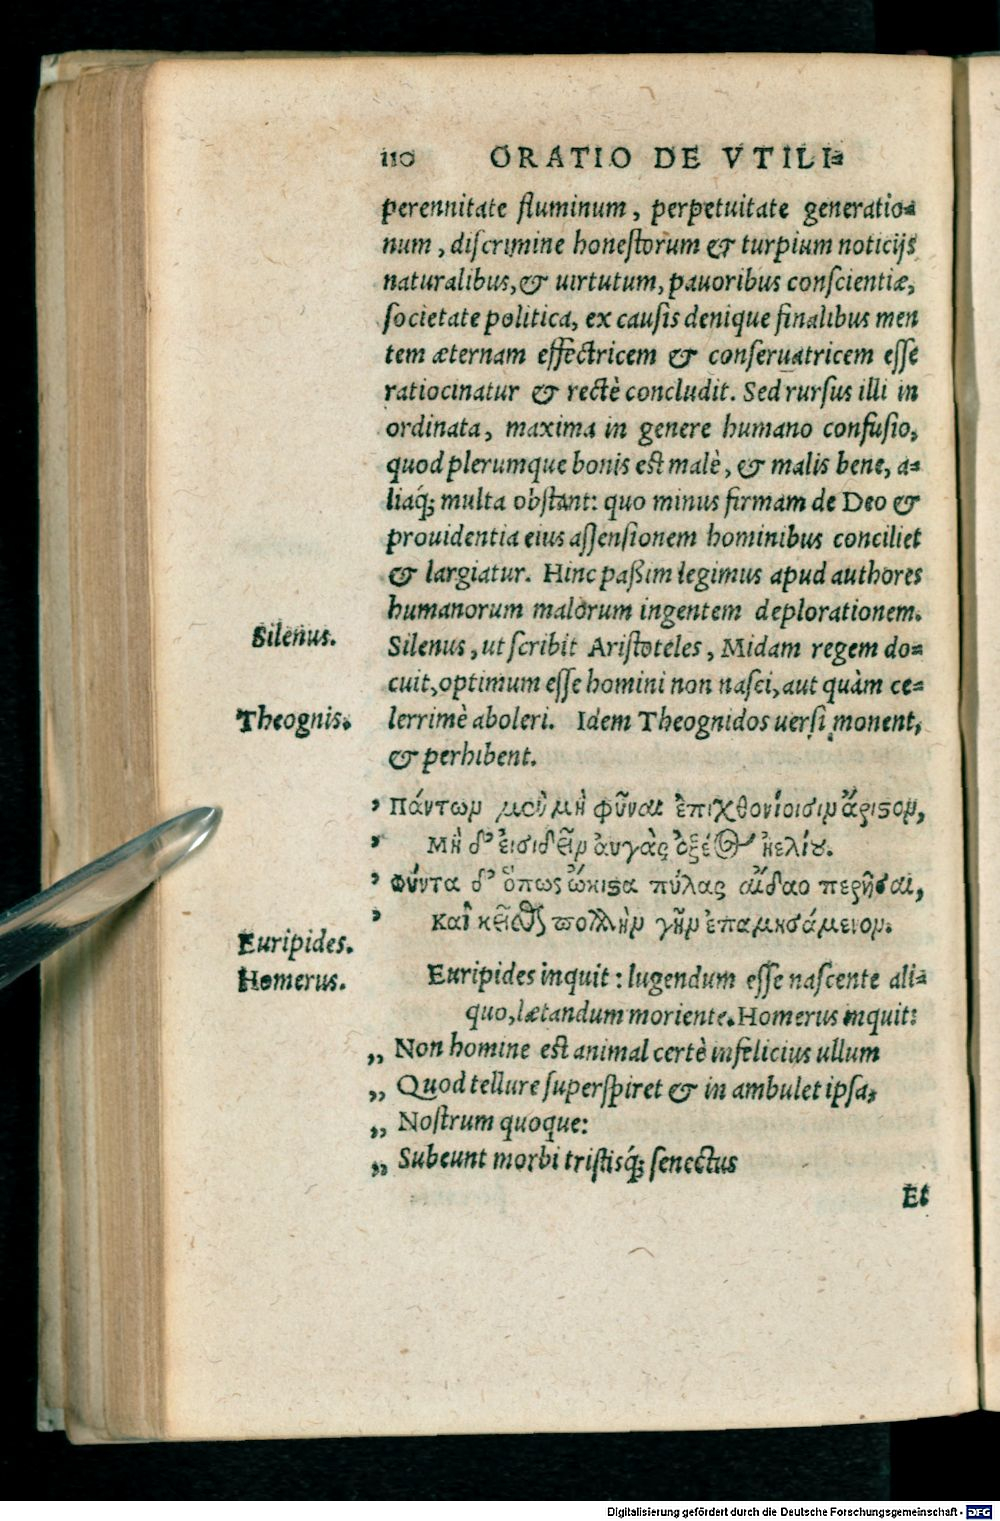 110 ORATIO DE VTILI-
perennitate fluminum, perpetuitate generatio-
num, discrimine honestorum & turpium noticijs
naturalibus, & uirtutum, pauoribus conscientiæ,
societate politica, ex causis denique finalibus men
tem æternam effectricem & conseruatricem esse
ratiocinatur & rectè concludit. Sed rursus illi in
ordinata, maxima in genere humano confusio,
quod plerumque bonis est malè, & malis bene, a-
liaq́; multa obstant: quo minus firmam de Deo &
prouidentia eius assensionem hominibus conciliet
& largiatur. Hinc paßim legimus apud authores
humanorum malorum ingentem deplorationem.
Silenus.
Silenus, ut scribit Aristoteles, Midam regem do-
cuit, optimum esse homini non nasci, aut quàm ce-
Theognis.
lerrimè aboleri. Idem Theognidos uersi monent,
& perhibent.
, Πάντων μὲν μὴ φῦναι ἐπιχθονίοισιν ἄριστον,
, Μὴ δ' ἐισιδεῖν ἀυγὰς ὀξέος ἠελίου.
, Φύντα δ' ὅπως ὤκιστα πύλας ἀΐδαο περῆσαι,
, Καὶ κεῖσθαι πολλὴν γῆν ἐπαμησάμενον.
Euripides.
Homerus.
Euripides inquit: lugendum esse nascente ali-
quo, lætandum moriente. Homerus inquit:
,, Non homine est animal certè infelicius ullum
,, Quod tellure superspiret & in ambulet ipsa,
,, Nostrum quoque:
,, Subeunt morbi tristisq́; senectus
Et
Digitalisierung gefördert durch die Deutsche Forschungsgemeinschaft - DFG